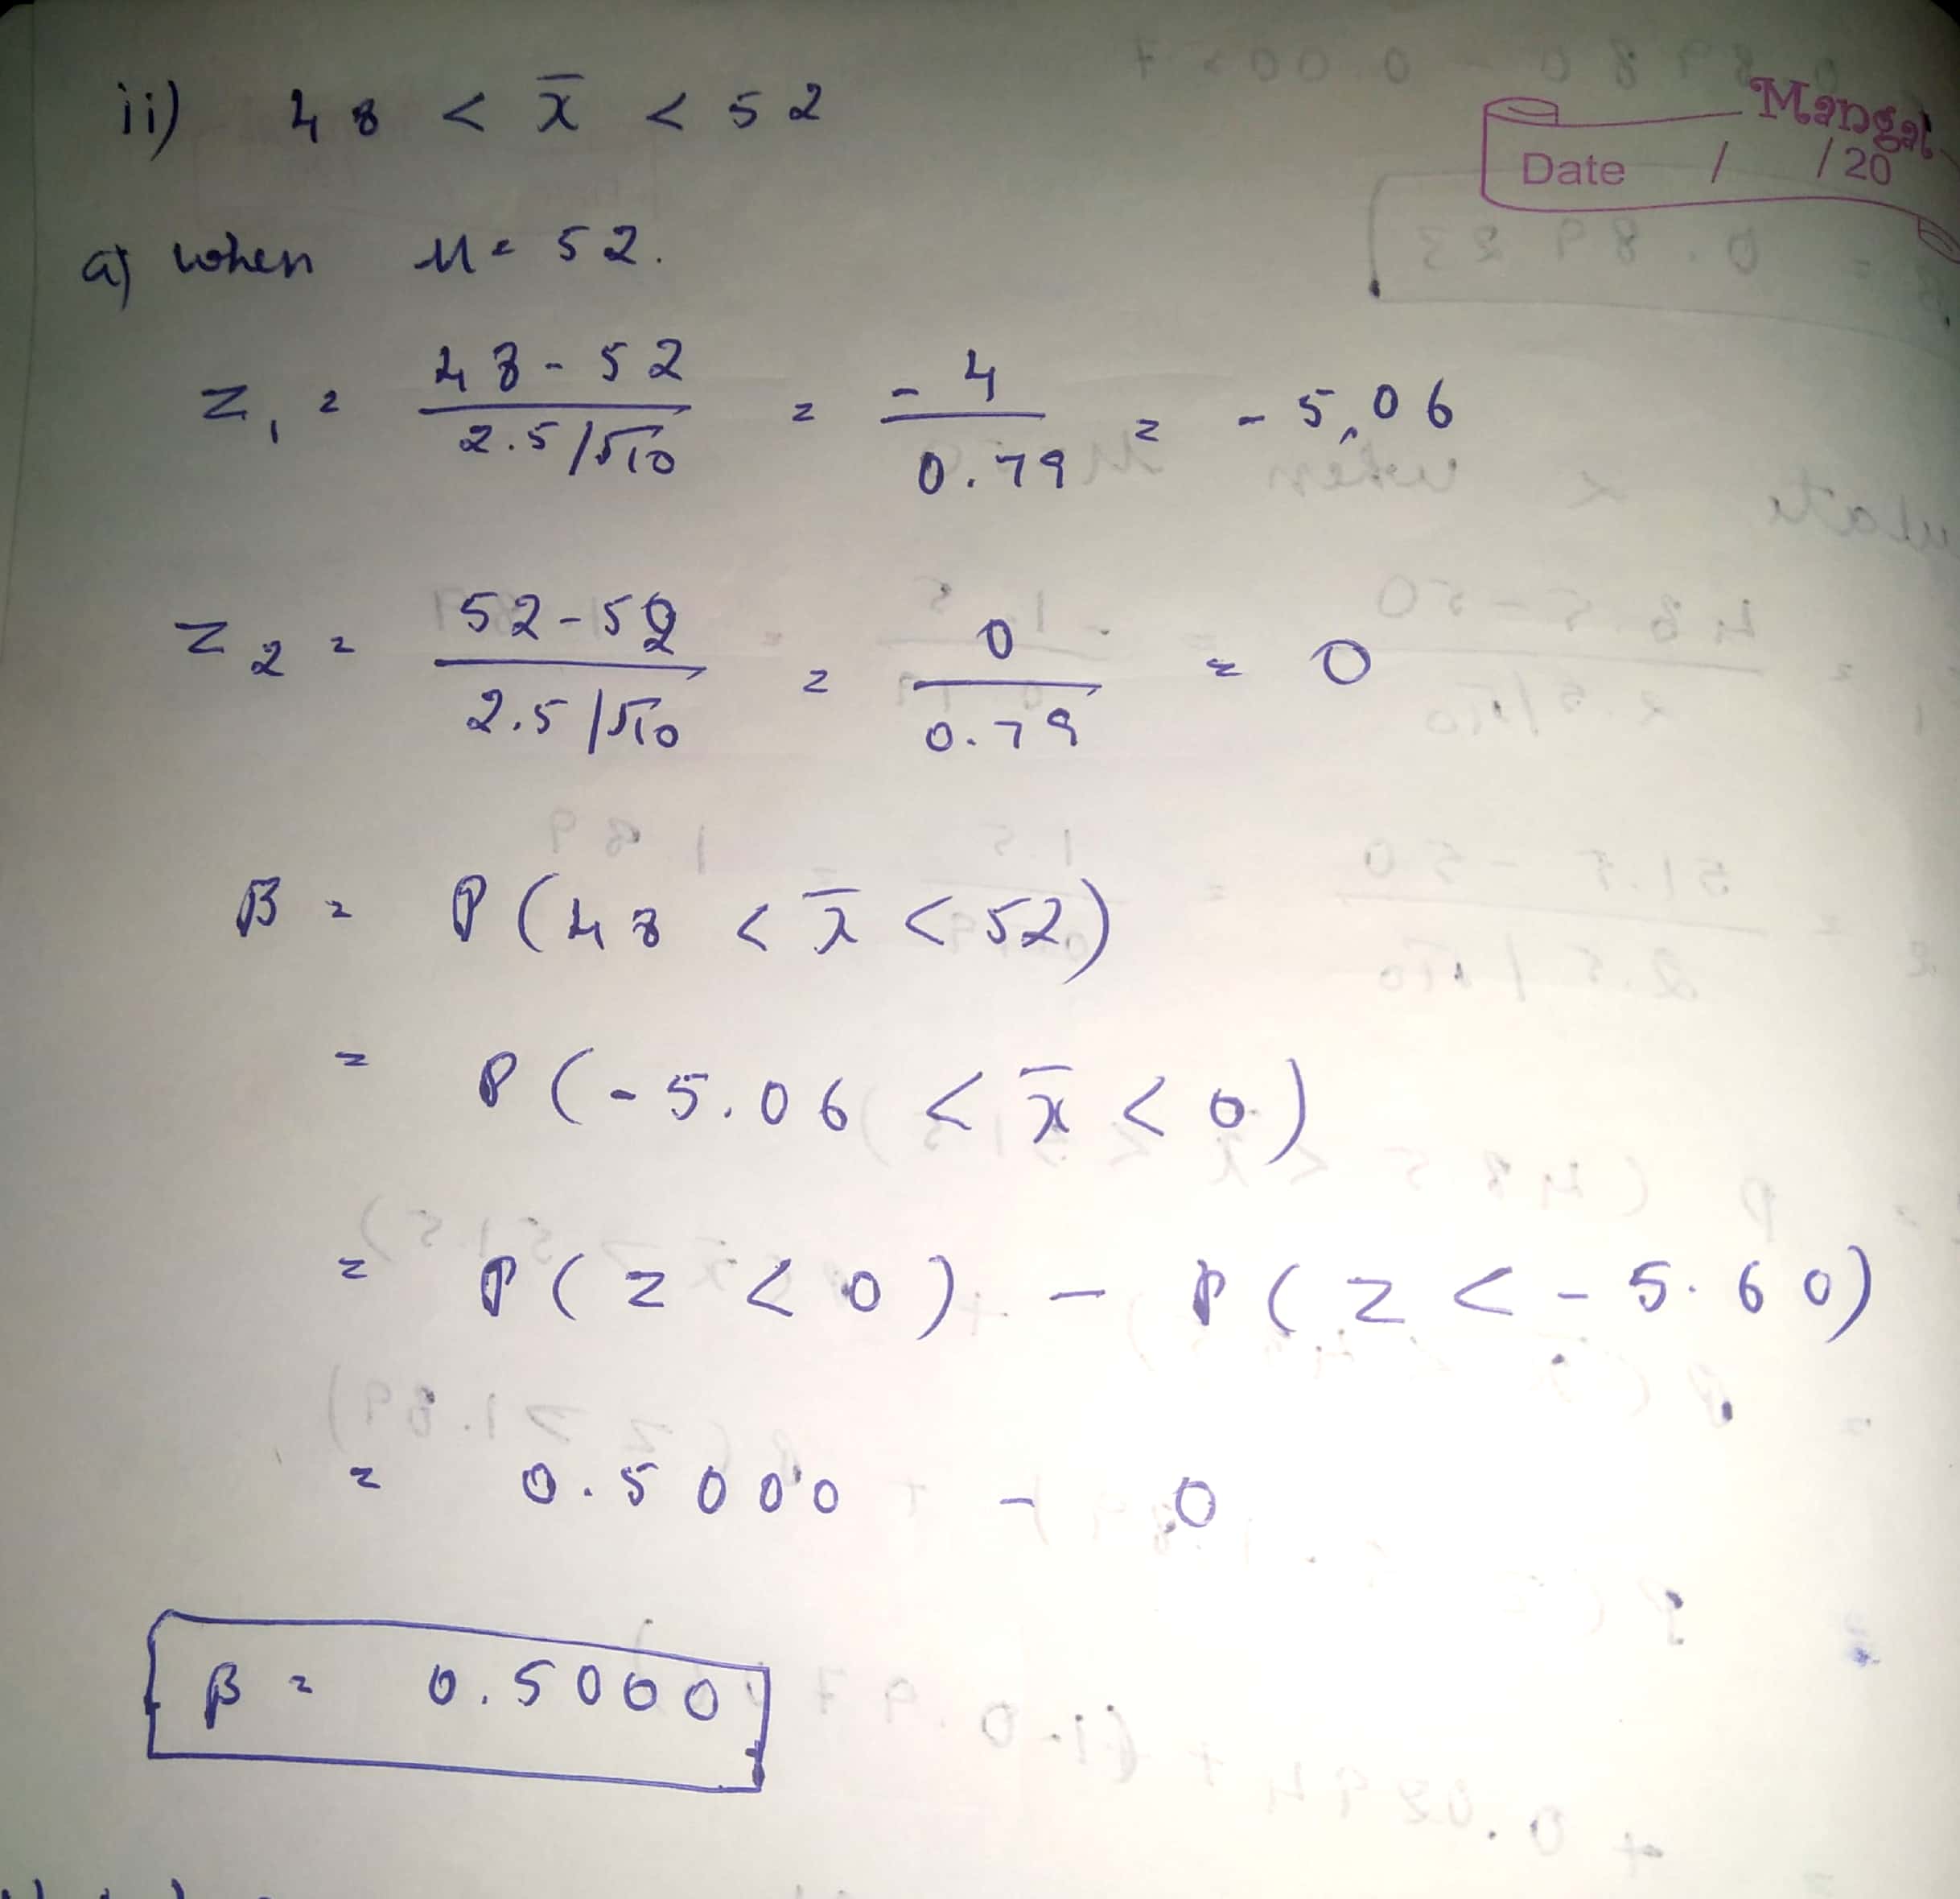 Mangal
Date / /20
ii) 48 < x̄ < 52
a) when μ = 52.
z₁ = (48 - 52)/(2.5/√10) = -4/0.79 = -5.06
z₂ = (52 - 52)/(2.5/√10) = 0/0.79 = 0
β = P(48 < x̄ < 52)
= P(-5.06 < x̄ < 0)
= P(z < 0) - P(z < -5.60)
= 0.5000 - 0
β = 0.5000